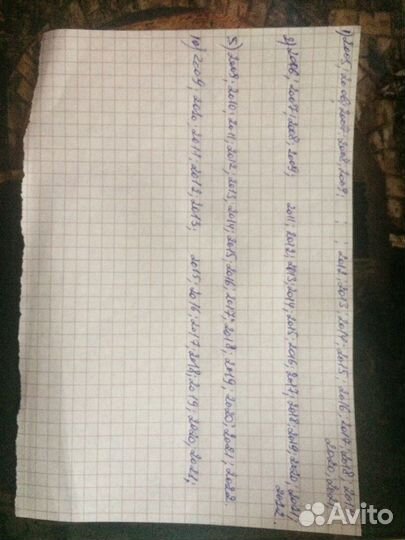 1) 2005; 2006; 2007; 2008; 2009; ; ; 2012; 2013; 2014; 2015; 2016; 2017; 2018; 2019;
2) 2006; 2007; 2008; 2009; 2011; 2012; 2013; 2014; 2015; 2016; 2017; 2018; 2019; 2020; 2021;
2022.
5) 2009; 2010; 2011; 2012; 2013; 2014; 2015; 2016; 2017; 2018; 2019; 2020; 2021; 2022.
10) 2009; 2010; 2011; 2012; 2013; 2015; 2016; 2017; 2018; 2019; 2020; 2021;
Avito